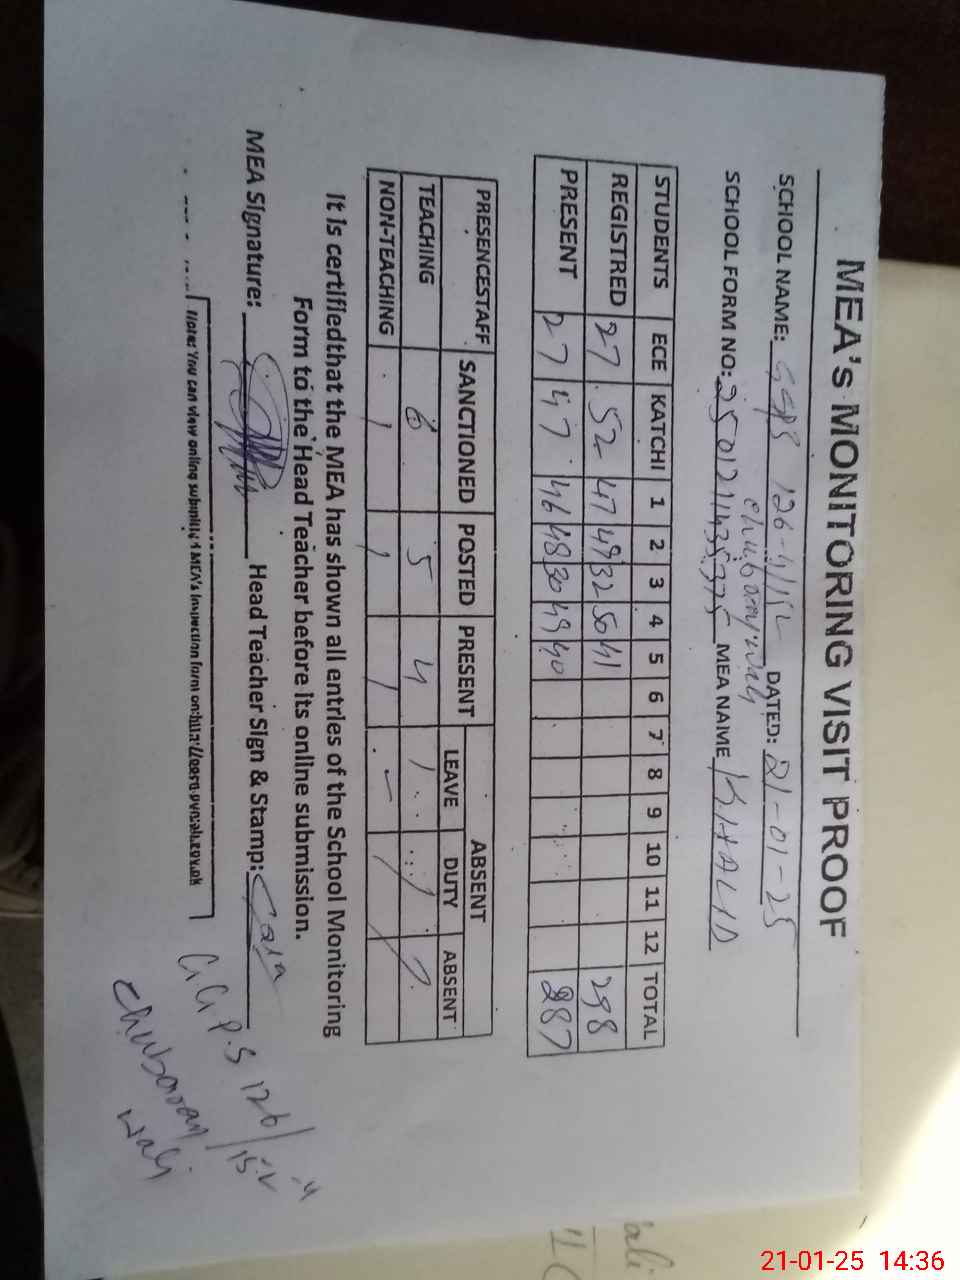 MEA's MONITORING VISIT PROOF
SCHOOL NAME: GGPS 126-A/15L DATED: 21-01-25
SCHOOL FORM NO: MEA NAME KHALID
STUDENTS ECE KATCHI 1 2 3 4 5 6 7 8 9 10 11 12 TOTAL
REGISTRED 27 52 47 49 32 50 41 298
PRESENT 27 47 46 48 30 49 40 287
PRESENCESTAFF SANCTIONED POSTED PRESENT ABSENT
LEAVE DUTY ABSENT
TEACHING 6 5 4 1
NON-TEACHING 1 1 1 -
It is certifiedthat the MEA has shown all entries of the School Monitoring
Form to the Head Teacher before its online submission.
MEA Signature: Head Teacher Sign & Stamp:
Note: You can view online submitted MEA's Inspection form on:
G G P.S 126/15-L
wali
ali
21-01-25 14:36